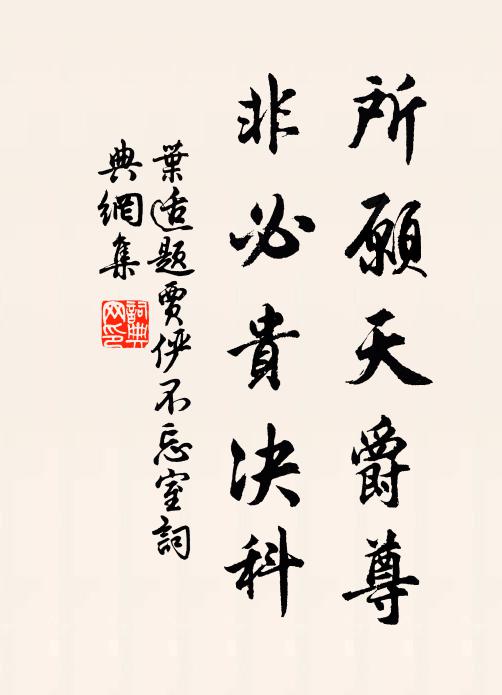 所願天爵尊
非必貴決科
葉适題賈俨不忘室詞
典網集
詞典網印